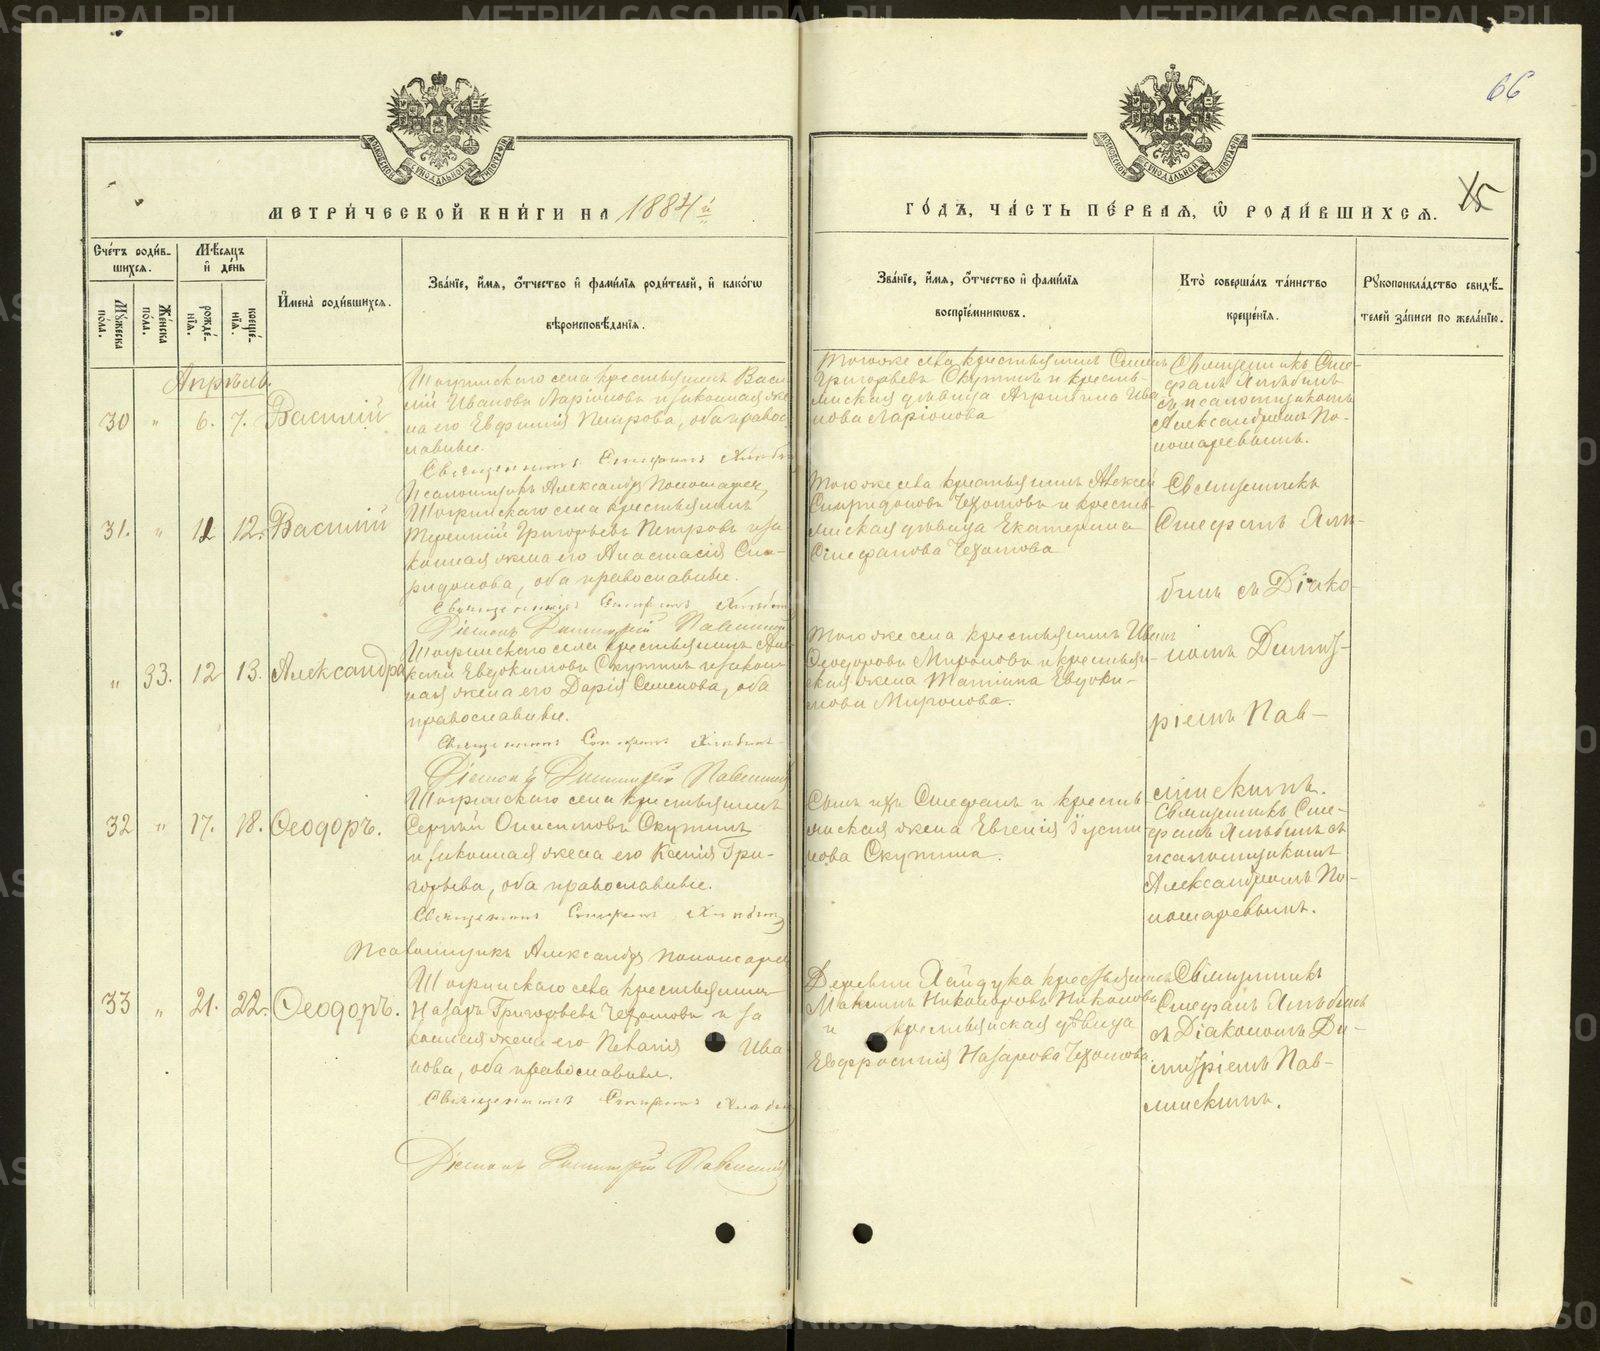 66
МЕТРИ́ЧЕСКОЙ КНИ́ГИ НА 1884 й
ГО́ДЪ, ЧА́СТЬ ПЕ́РВАЯ, Ѡ҆ РОДИ́ВШИХСЯ.
Сче́тъ роди́в-
шихся.
Му́жеска
по́ла.
Же́нска
по́ла.
Мѣ́сяцъ
и҆ де́нь
рожде́-
нїя.
креще́-
нїя.
И҆мена̀ роди́вшихся.
Зва́нїе, и҆́мя, ѻ҆́тчество и҆ фами́лїя роди́телей, и҆ како́гѡ
вѣроисповѣ́данїя.
Зва́нїе, и҆́мя, ѻ҆́тчество и҆ фами́лїя
воспрїе́мникѡвъ.
Кто̀ соверша́лъ та́инство
креще́нїя.
Рꙋкоприкла́дство свидѣ́-
телей за́писи по жела́нїю.
Апрѣль.
30 " 6. 7. Василій
крестьянинъ Васи-
лій Ивановъ Ларіоновъ и законная же-
на его Евфимія Петрова, оба право-
славные.
Священникъ Стефанъ Хлѣбин
Псаломщикъ Александръ Пономарев
Тогоже села крестьянинъ Семенъ
Григорьевъ Скутинъ и кресть-
янская дѣвица Агрипина Ива-
нова Ларіонова
Священникъ Сте-
фанъ Хлѣбинъ
съ псаломщикомъ
Александромъ По-
номаревымъ.
31. " 11 12. Василій
села крестьянинъ
Терентій Григорьевъ Петровъ и за-
конная жена его Анастасія Спи-
ридонова, оба православные.
Священникъ Стефанъ Хлѣбин
Діаконъ Димитрій
Тогоже села крестьянинъ Алексѣй
Спиридоновъ и кресть-
янская дѣвица Екатерина
Стефанова
Священникъ
Стефанъ Хлѣ-
бинъ съ Діако-
номъ Димит-
ріемъ Пав-
линскимъ.
" 33. 12 13. Александра
села крестьянинъ
Евдокимовъ Скутинъ и закон-
ная жена его Дарія Семенова, оба
православные.
Священникъ Стефанъ Хлѣбинъ
Діаконъ Димитрій
Тогоже села крестьянинъ Иванъ
Ѳеодоровъ Мироновъ и крестьян-
ская жена Татіана Евдоки-
мова Миронова.
32 " 17. 18. Ѳеодоръ.
села крестьянинъ
Сергій Онисимовъ Скутинъ
и законная жена его Ксенія Гри-
горьева, оба православные.
Священникъ Стефанъ Хлѣбин
Псаломщикъ Александръ Пономарев
Сынъ ихъ Стефанъ и кресть-
янская жена Евгенія Іусти-
нова Скутина.
Священникъ Сте-
фанъ Хлѣбинъ съ
псаломщикомъ
Александромъ По-
номаревымъ.
33 " 21. 22. Ѳеодоръ.
села крестьянинъ
Назаръ Григорьевъ и за-
конная жена его Ива-
нова, оба православные.
Священникъ Стефанъ Хлѣбин
Діаконъ Димитрій
Деревни Хайдука крестьянинъ
Максимъ Никаноровъ
и крестьянская дѣвица
Евфросинія Назарова
Священникъ
Стефанъ Хлѣбинъ
съ Діакономъ Ди-
митріемъ Пав-
линскимъ.
METRIKI.GASO-URAL.RU